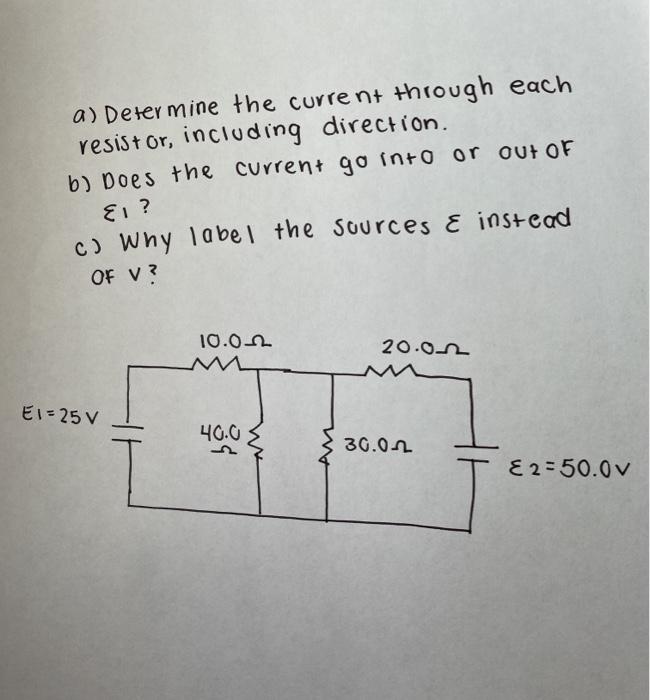 a) Determine the current through each
resistor, including direction.
b) Does the current go into or out of
ε1?
c) Why label the sources ε instead
of V?
10.0Ω
20.0Ω
E1=25V
40.0
Ω
30.0Ω
ε2=50.0V